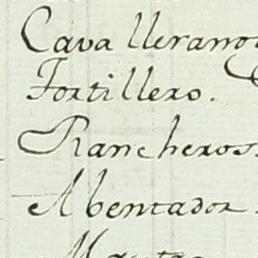 Cavallerang
Tortillero.
Rancheros.
Abentador.